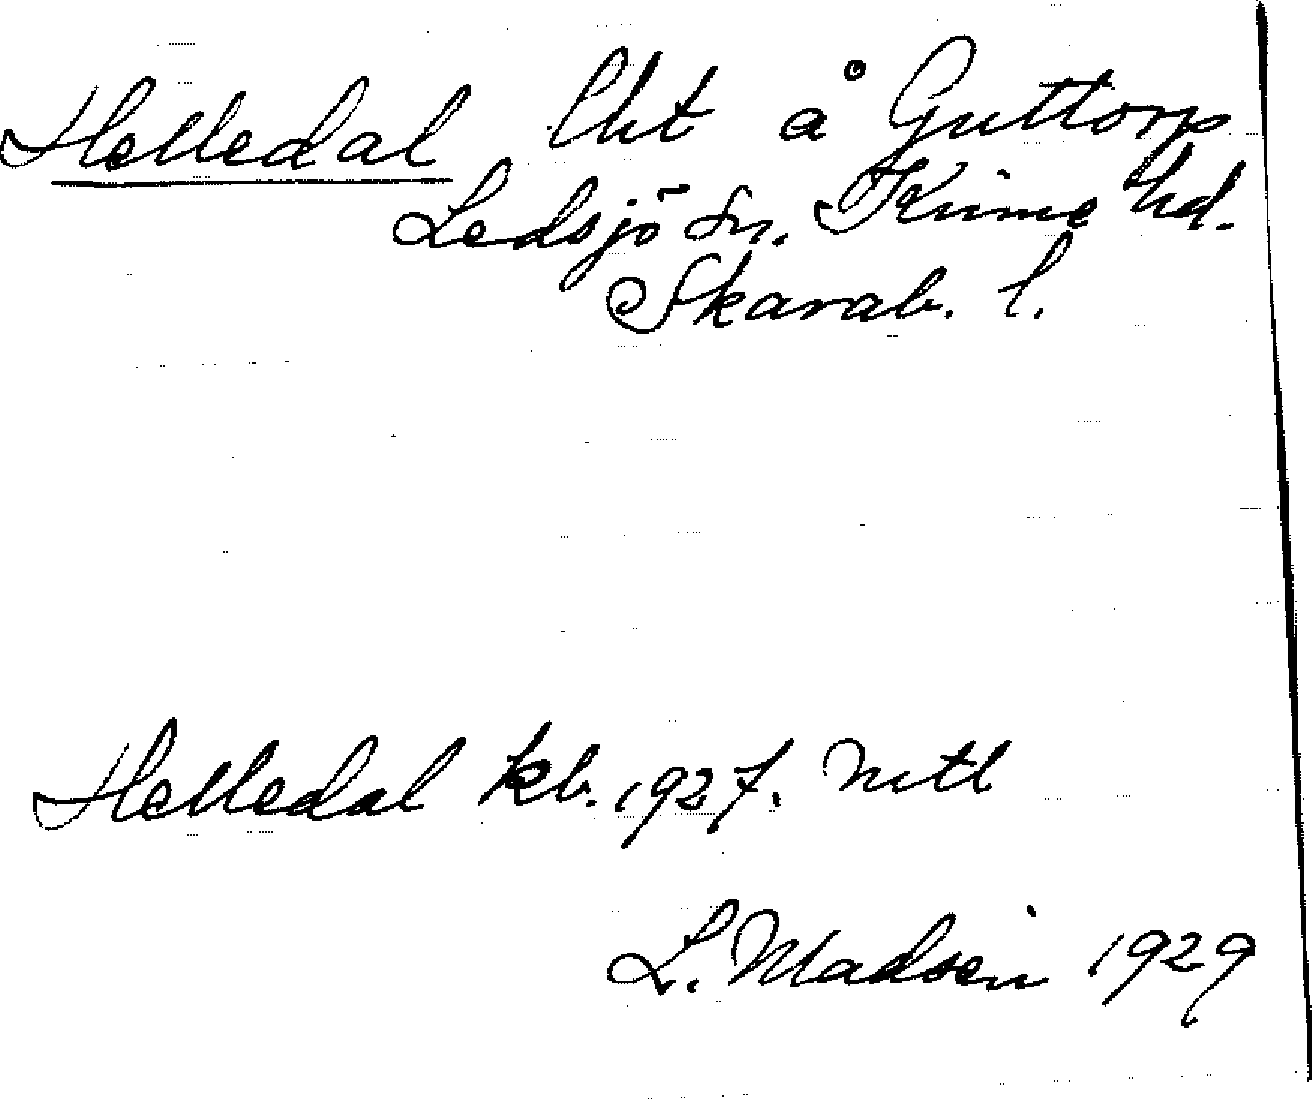 Helledal lht å Guttorp
Ledsjö sn. Kinne hd.
Skarab. l.
Helledal kb. 1927. mtl
L. Madsén 1929